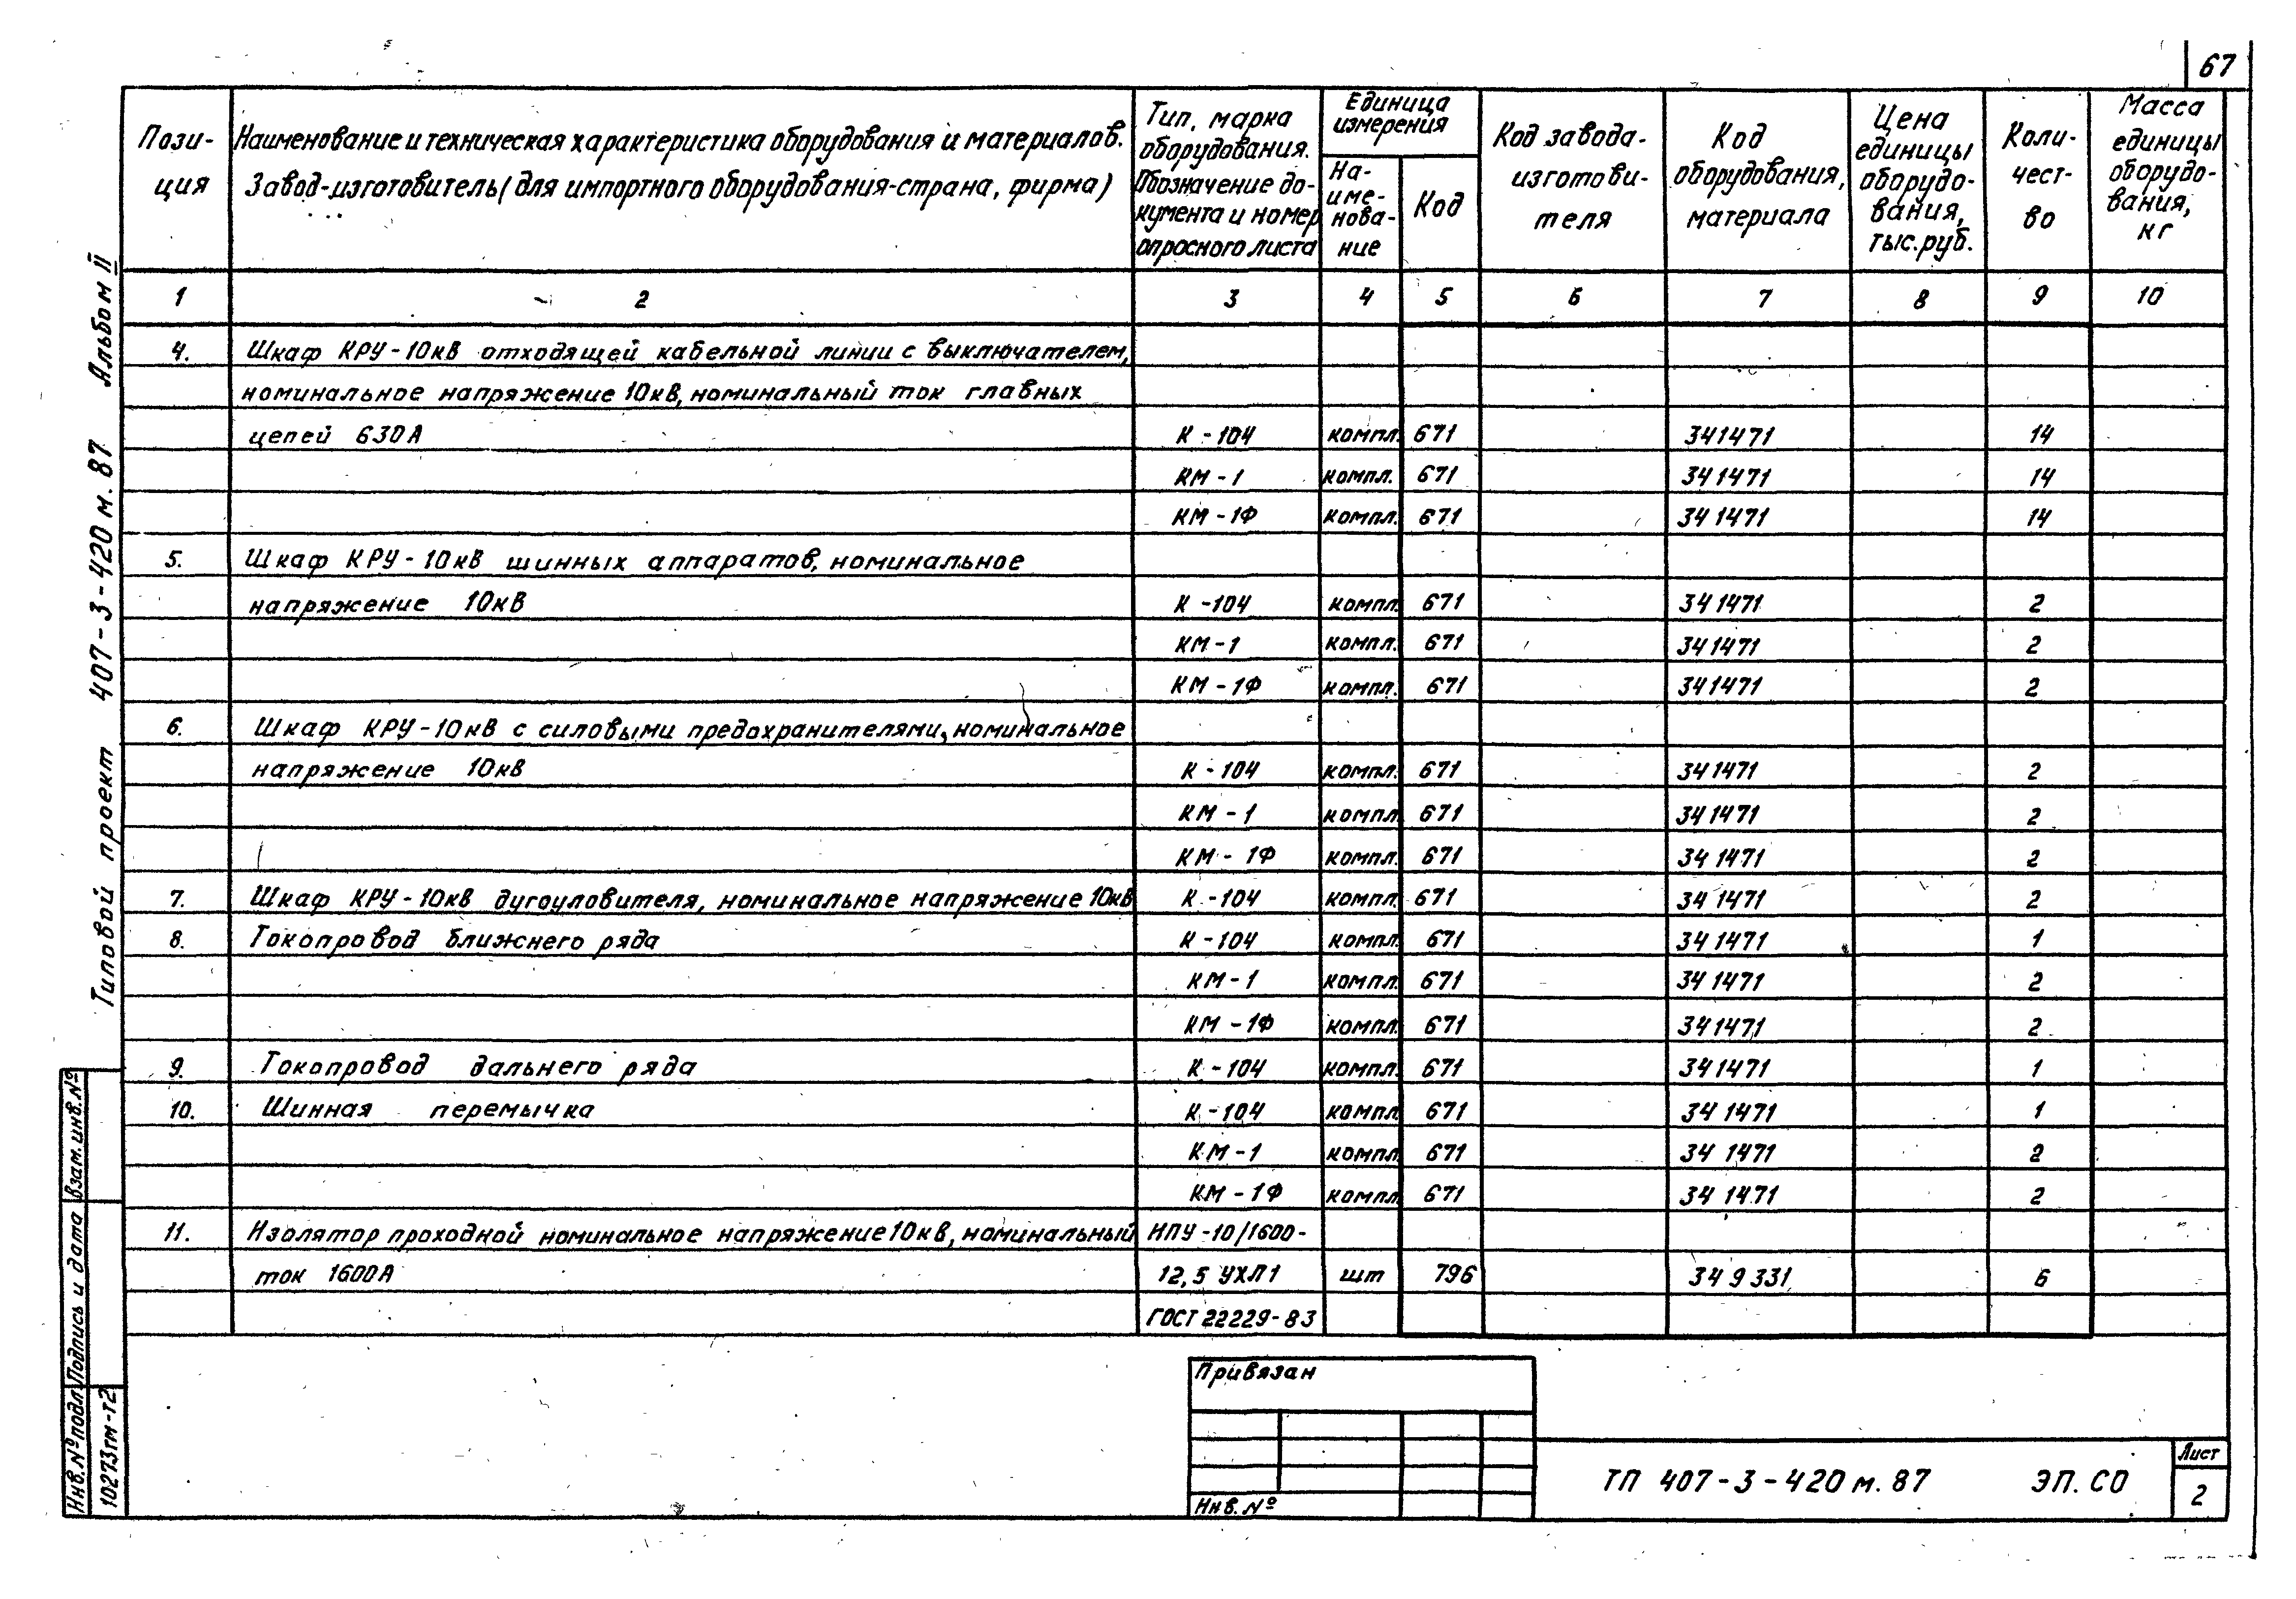 67
Пози-
ция
Наименование и техническая характеристика оборудования и материалов.
Завод-изготовитель (для импортного оборудования-страна, фирма)
Тип, марка
оборудования.
Обозначение до-
кумента и номер
опросного листа
Единица
измерения
На-
име-
нова-
ние
Код
Код завода-
изготови-
теля
Код
оборудования,
материала
Цена
единицы
оборудо-
вания,
тыс.руб.
Коли-
чест-
во
Масса
единицы
оборудо-
вания,
кг
1 2 3 4 5 6 7 8 9 10
4. Шкаф КРУ-10кВ отходящей кабельной линии с выключателем,
номинальное напряжение 10кВ, номинальный ток главных
цепей 630А К-104 компл. 671 341471 14
КМ-1 компл. 671 341471 14
КМ-1Ф компл. 671 341471 14
5. Шкаф КРУ-10кВ шинных аппаратов, номинальное
напряжение 10кВ К-104 компл. 671 341471 2
КМ-1 компл. 671 341471 2
КМ-1Ф компл. 671 341471 2
6. Шкаф КРУ-10кВ с силовыми предохранителями, номинальное
напряжение 10кВ К-104 компл. 671 341471 2
КМ-1 компл. 671 341471 2
КМ-1Ф компл. 671 341471 2
7. Шкаф КРУ-10кВ дугоуловителя, номинальное напряжение 10кВ К-104 компл. 671 341471 2
8. Токопровод ближнего ряда К-104 компл. 671 341471 1
КМ-1 компл. 671 341471 2
КМ-1Ф компл. 671 341471 2
9. Токопровод дальнего ряда К-104 компл. 671 341471 1
10. Шинная перемычка К-104 компл. 671 341471 1
КМ-1 компл. 671 341471 2
КМ-1Ф компл. 671 341471 2
11. Изолятор проходной номинальное напряжение 10кВ, номинальный ИПУ-10/1600-
ток 1600А 12,5 УХЛ1 шт 796 349331 6
ГОСТ 22229-83
Привязан
Инв.№
ТП 407-3-420м.87 ЭП.СО
Лист
2
Типовой проект 407-3-420м.87 Альбом II
Взам.инв.№
Подпись и дата
Инв.№подл.
10273тм-т2